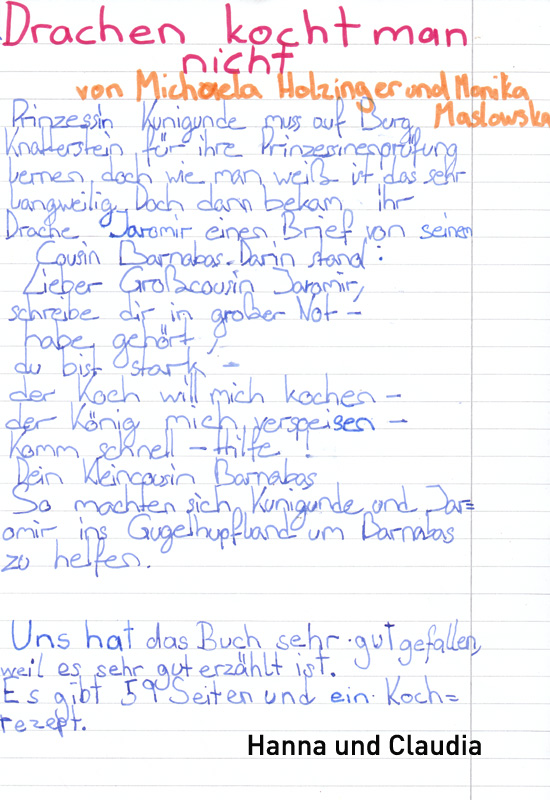 Drachen kocht man
nicht
von Michaela Holzinger und Monika
Maslowska
Prinzessin Kunigunde muss auf Burg
Knatterstein für ihre Prinzessinenprüfung
lernen, doch wie man weiß ist das sehr
langweilig. Doch dann bekam ihr
Drache Jaromir einen Brief von seinen
Cousin Barnabas. Darin stand:
Lieber Großcousin Jaromir,
schreibe dir in großer Not -
habe gehört,
du bist stark -
der Koch will mich kochen -
der König mich verspeisen -
Komm schnell - Hilfe!
Dein Kleincousin Barnabas
So machten sich Kunigunde und Jar=
omir ins Gugelhupfland um Barnabas
zu helfen.
Uns hat das Buch sehr gut gefallen,
weil es sehr gut erzählt ist.
Es gibt 59 Seiten und ein Koch=
rezept.
Hanna und Claudia